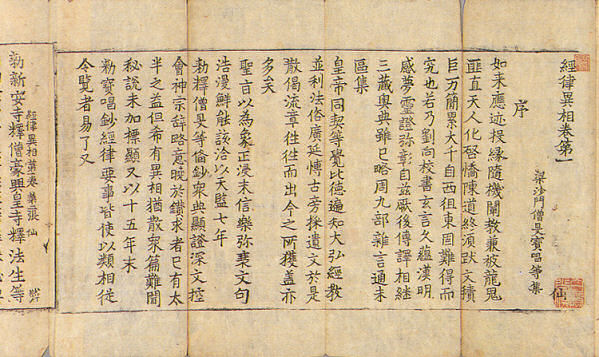 經律異相卷第一
梁沙門僧旻寶唱等集
序
仙
如来應迹投緣隨機闡教兼被龍鬼
匪直天人化啓憍陳道終須跋文積
巨万簡累大千自西徂東固難得而
究也若乃劉向校書玄言久蘊漢明
感夢靈證弥彰自茲厥後傳譯相継
三藏奧典雖已略周九部雜言通未
區集
皇帝同契等覺比德遍知大弘經教
並利法俗廣延博古旁採遺文於是
散偈流章往往而出今之所獲蓋亦
多矣
聖旨以為象正浸末信樂弥衰文句
浩漫鮮能該洽以天監七年
勑釋僧旻等俻鈔衆典顯證深文控
會神宗辞略意曉於鑚求者已有太
半之益但希有異相猶散衆篇難聞
秘說未加標顯又以十五年末
勑寶唱鈔經律要事皆使以類相從
令覽者易了又
經律異相第一卷 第二張 仙
勑新安寺釋僧豪興皇寺釋法生等